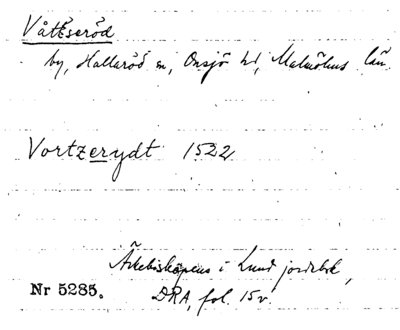 Våttseröd
by, Hallaröd sn, Onsjö hd, Malmöhus län.
Vortzerydt 1522
Ärkebiskopens i Lund jordebok,
DRA, fol. 15v.
Nr 5285.